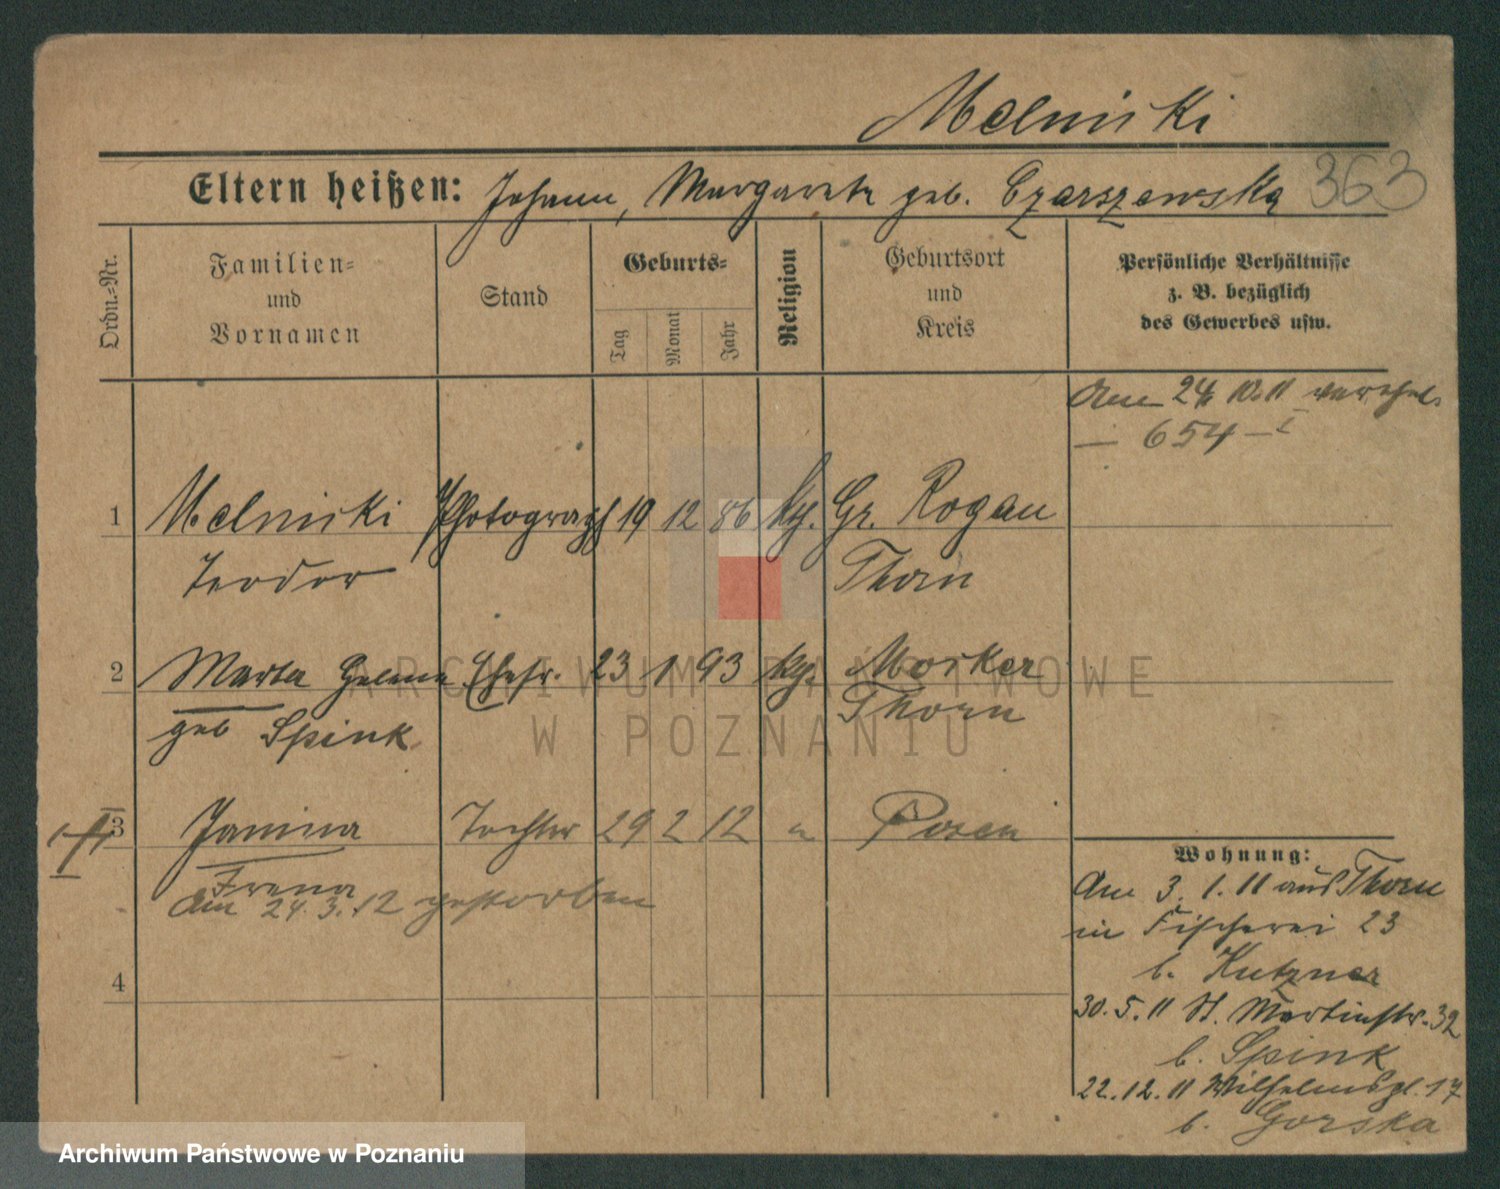 Melniski
363
Eltern heißen: Johann, Margarete geb. Czarszewska
Ordn.-Nr.
Familien-
und
Vornamen
Stand
Geburts-
Tag
Monat
Jahr
Religion
Geburtsort
und
Kreis
Persönliche Verhältnisse
z. B. bezüglich
des Gewerbes usw.
Am 24 10. 11 verehel.
— 654 — I
1 Melniski Photograph 19 12 86 kth. Gr. Rogau
Teodor Thorn
2 Marta Helena Ehefr. 23 1 93 kth. Mocker
geb Spink Thorn
3 Janina Tochter 29 2 12 " Posen
Irena
am 24.3.12 gestorben
4
Wohnung:
Am 3. 1. 11 aus Thorn
in Fischerei 23
b. Kutzner
30. 5. 11 St. Martinstr. 32
b. Spink
22. 12. 11 Wilhelmspl. 17
b. Gorska
ARCHIWUM PAŃSTWOWE
W POZNANIU
Archiwum Państwowe w Poznaniu